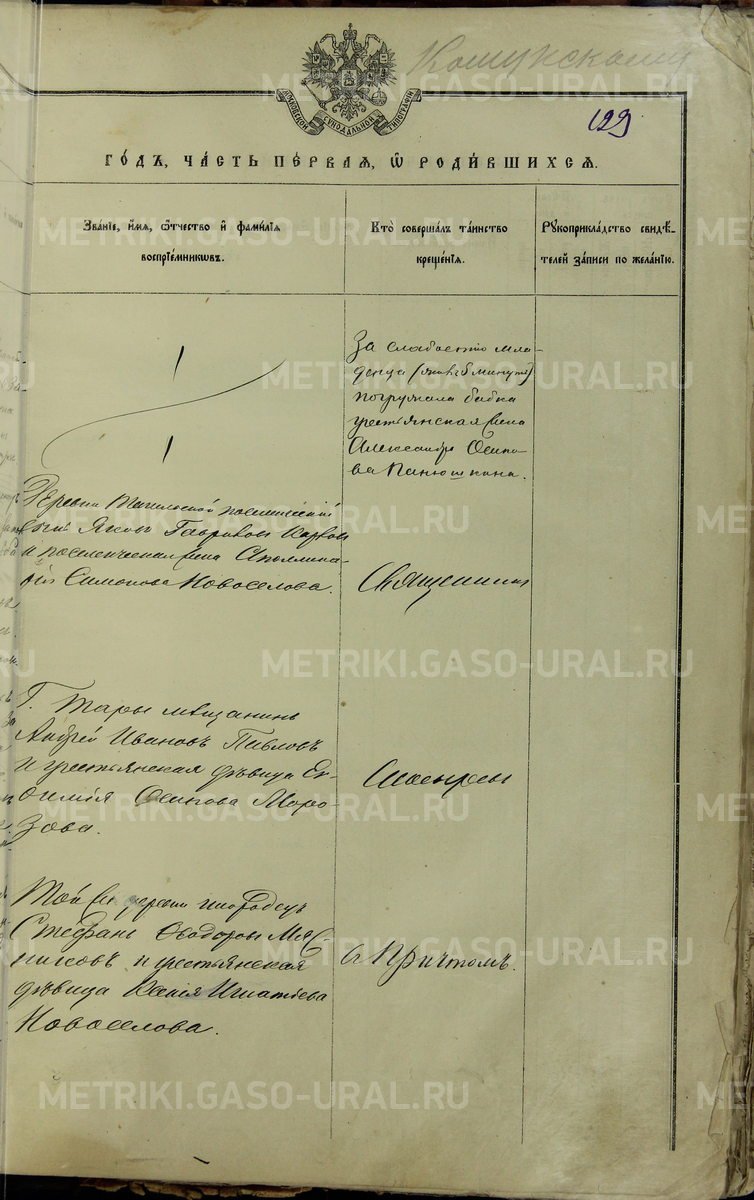 Кошукскаго
МОСКОВСКОЙ СѴНОДАЛЬНОЙ ТИПОГРАФІИ
129
ГОДЪ, ЧАСТЬ ПЕРВАЯ, Ѡ РОДИВШИХСЯ.
Званіе, имя, ѻтчество и фамилія
воспріемниковъ.
Кто совершалъ таинство
крещенія.
Рукоприкладство свидѣ-
телей записи по желанію.
За слабостію мла-
денца (живъ 5 минутъ)
погружала бабка
крестьянская жена
Александра Осипо-
ва Панюшкина.
Деревни
Яковъ Гавриловъ
и поселенческая жена Аполлина-
рія Симонова Новоселова.
Священникъ
Г. Тары мѣщанинъ
Андрей Ивановъ Павловъ
и крестьянская дѣвица Ев-
ѳимія Осипова Моро-
зова.
Той же деревни инородецъ
Стефанъ Ѳеодоровъ
и крестьянская
дѣвица Ксенія Игнатіева
Новоселова.
съ Причтомъ.
METRIKI.GASO-URAL.RU